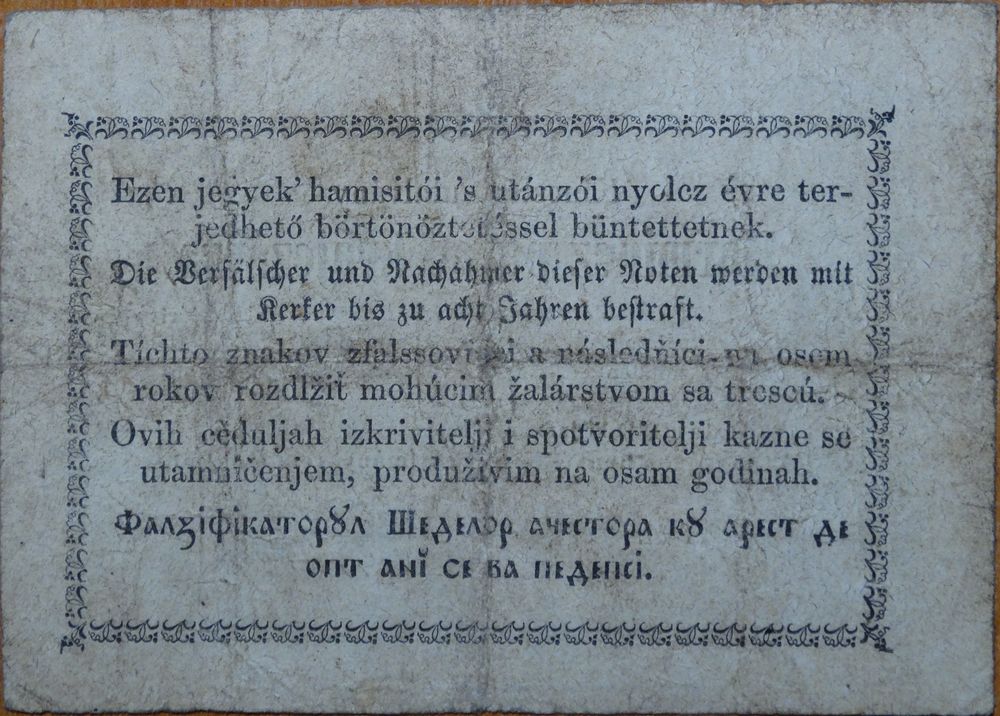 Ezen jegyek’ hamisitói ’s utánzói nyolcz évre ter-
jedhető börtönöztetéssel büntettetnek.
Die Verfälscher und Nachahmer dieser Noten werden mit
Kerker bis zu acht Jahren bestraft.
Tíchto znakov zfalssovníci a následňíci osem
rokov rozdlžiť mohúcim žalárstvom sa trescú.
Ovih cěduljah izkrivitelji i spotvoritelji kazne se
utamničenjem, produživim na osam godinah.
Фалꙁіфікаторꙋл Шеделор ачестора кꙋ арест де
опт анĭ се ва педепсі.